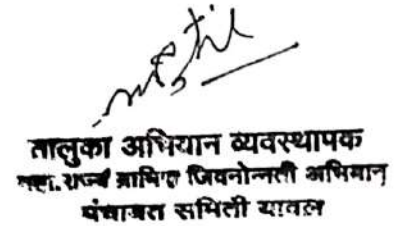 तालुका अभियान व्यवस्थापक
महा. राज्य ग्रामिण जिवनोन्नती अभियान
पंचायत समिती यावल